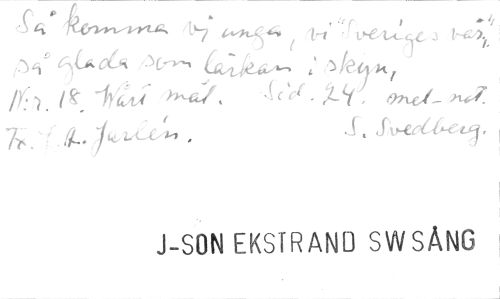 Så komma vi unga, vi "Sveriges vår",
så glada som lärkan i skyn,
N:r. 18. Vårt mål. Sid. 24. met-not.
Tx. J. A. Jarlén. S. Svedberg.
J-SON EKSTRAND SWSÅNG